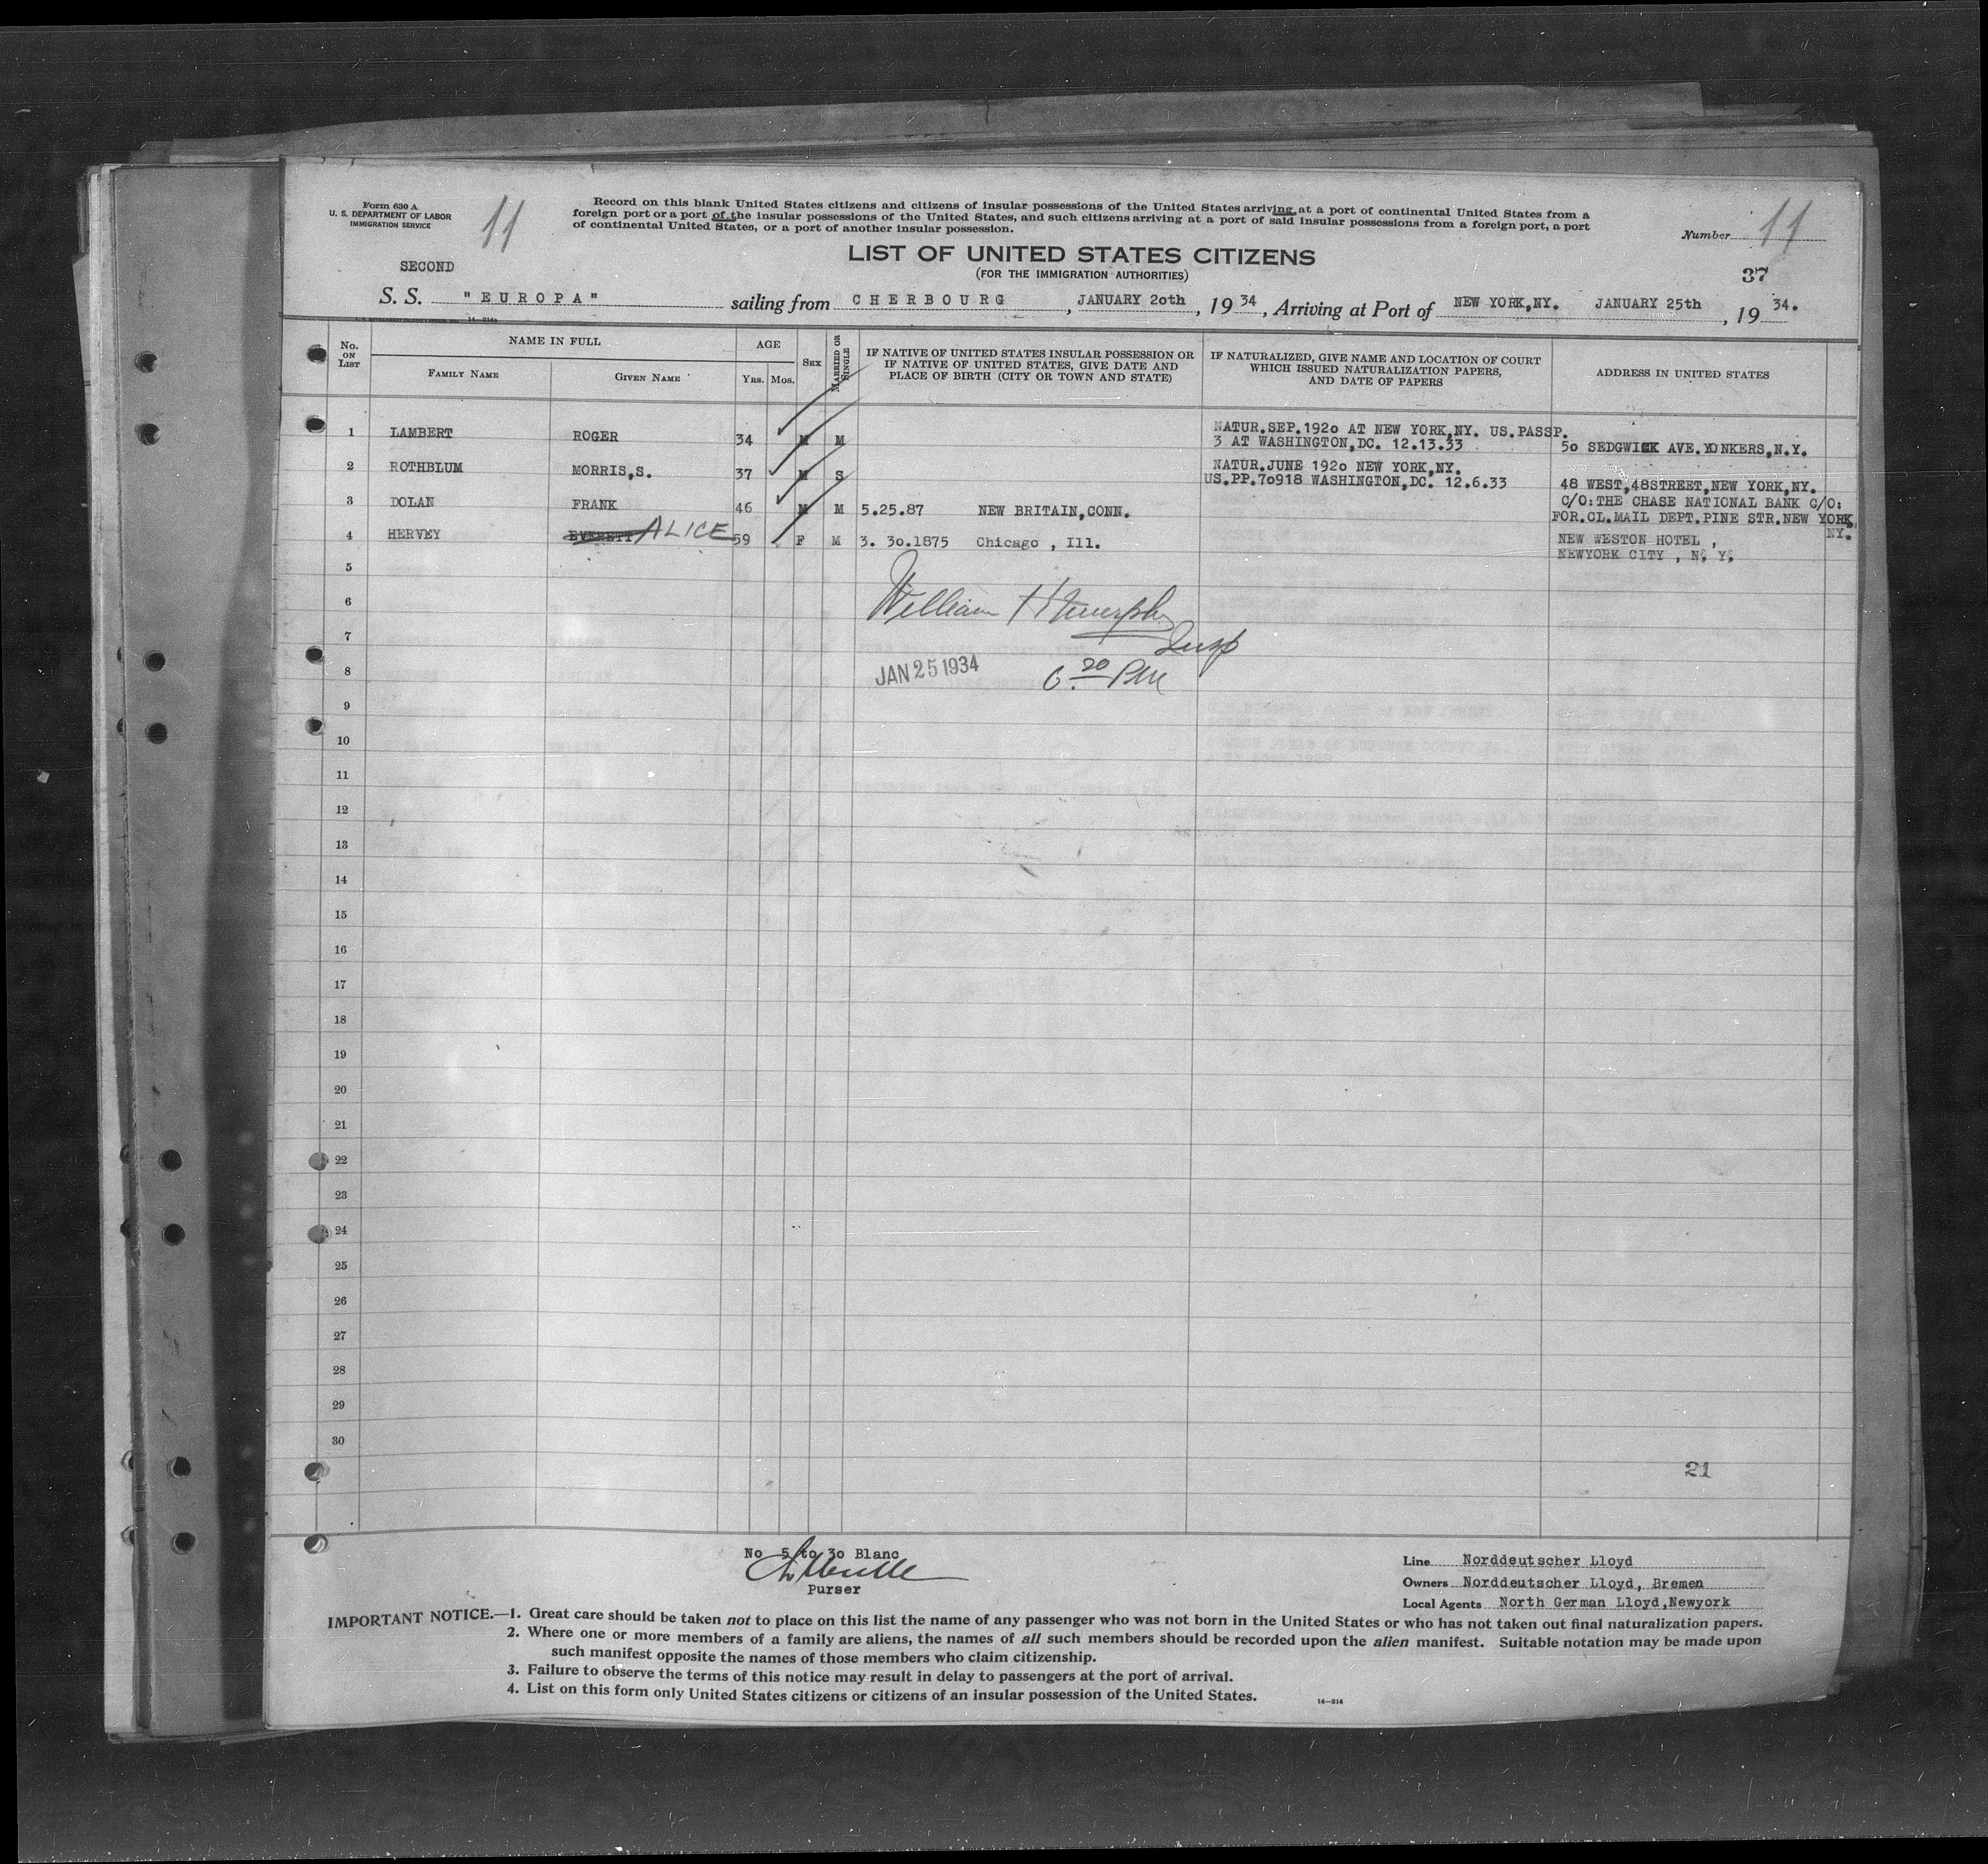 Form 630 A
U. S. DEPARTMENT OF LABOR
IMMIGRATION SERVICE
11
Record on this blank United States citizens and citizens of insular possessions of the United States arriving at a port of continental United States from a
foreign port or a port of the insular possessions of the United States, and such citizens arriving at a port of said insular possessions from a foreign port, a port
of continental United States, or a port of another insular possession.
Number 11
LIST OF UNITED STATES CITIZENS
(FOR THE IMMIGRATION AUTHORITIES)
37
SECOND
S. S. "EUROPA" sailing from CHERBOURG, JANUARY 2oth, 19 34, Arriving at Port of NEW YORK,NY. JANUARY 25th, 19 34.
No. ON LIST
NAME IN FULL
FAMILY NAME
GIVEN NAME
AGE
YRS. MOS.
SEX
MARRIED OR SINGLE
IF NATIVE OF UNITED STATES INSULAR POSSESSION OR
IF NATIVE OF UNITED STATES, GIVE DATE AND
PLACE OF BIRTH (CITY OR TOWN AND STATE)
IF NATURALIZED, GIVE NAME AND LOCATION OF COURT
WHICH ISSUED NATURALIZATION PAPERS,
AND DATE OF PAPERS
ADDRESS IN UNITED STATES
1 LAMBERT ROGER 34 M M NATUR.SEP.192o AT NEW YORK,NY. US.PASSP.
3 AT WASHINGTON,DC. 12.13.33 5o SEDGWICK AVE.YONKERS,N.Y.
2 ROTHBLUM MORRIS,S. 37 M S NATUR.JUNE 192o NEW YORK,NY.
US.PP.7o918 WASHINGTON,DC. 12.6.33 48 WEST,48STREET,NEW YORK,NY.
3 DOLAN FRANK 46 M M 5.25.87 NEW BRITAIN,CONN. C/O:THE CHASE NATIONAL BANK C/O:
FOR.CL.MAIL DEPT.PINE STR.NEW YORK,
NY.
4 HERVEY EVERETT ALICE 59 F M 3. 3o.1875 Chicago , Ill. NEW WESTON HOTEL ,
NEWYORK CITY , N. Y.
5
6
William H Murphy
7
Insp
8
JAN 25 1934 6.20 PM
9
10
11
12
13
14
15
16
17
18
19
20
21
22
23
24
25
26
27
28
29
30
21
No 5 to 3o Blanc
Purser
Line Norddeutscher Lloyd
Owners Norddeutscher Lloyd, Bremen
Local Agents North German Lloyd,Newyork
IMPORTANT NOTICE.—1. Great care should be taken not to place on this list the name of any passenger who was not born in the United States or who has not taken out final naturalization papers.
2. Where one or more members of a family are aliens, the names of all such members should be recorded upon the alien manifest. Suitable notation may be made upon
such manifest opposite the names of those members who claim citizenship.
3. Failure to observe the terms of this notice may result in delay to passengers at the port of arrival.
4. List on this form only United States citizens or citizens of an insular possession of the United States.
14—214